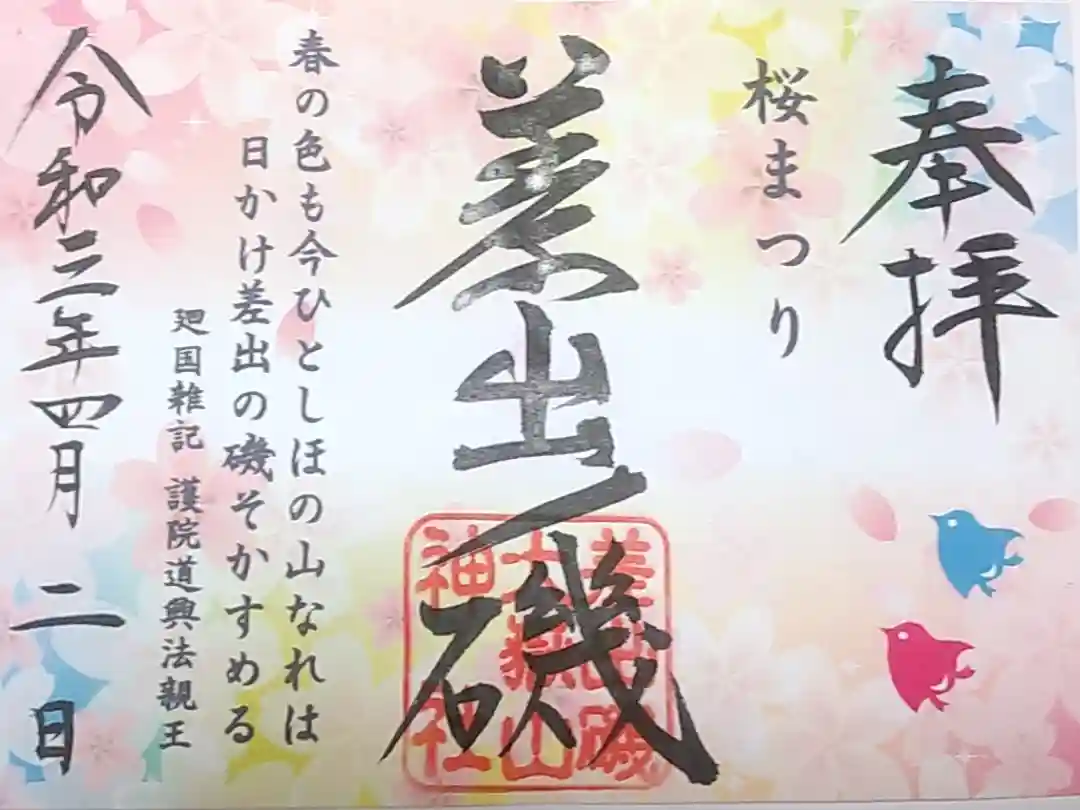 奉拝
桜まつり
差出磯
差出磯
大嶽山
神社
春の色も今ひとしほの山なれは
日かけ差出の磯そかすめる
廻国雑記 護院道興法親王
令和三年四月二日